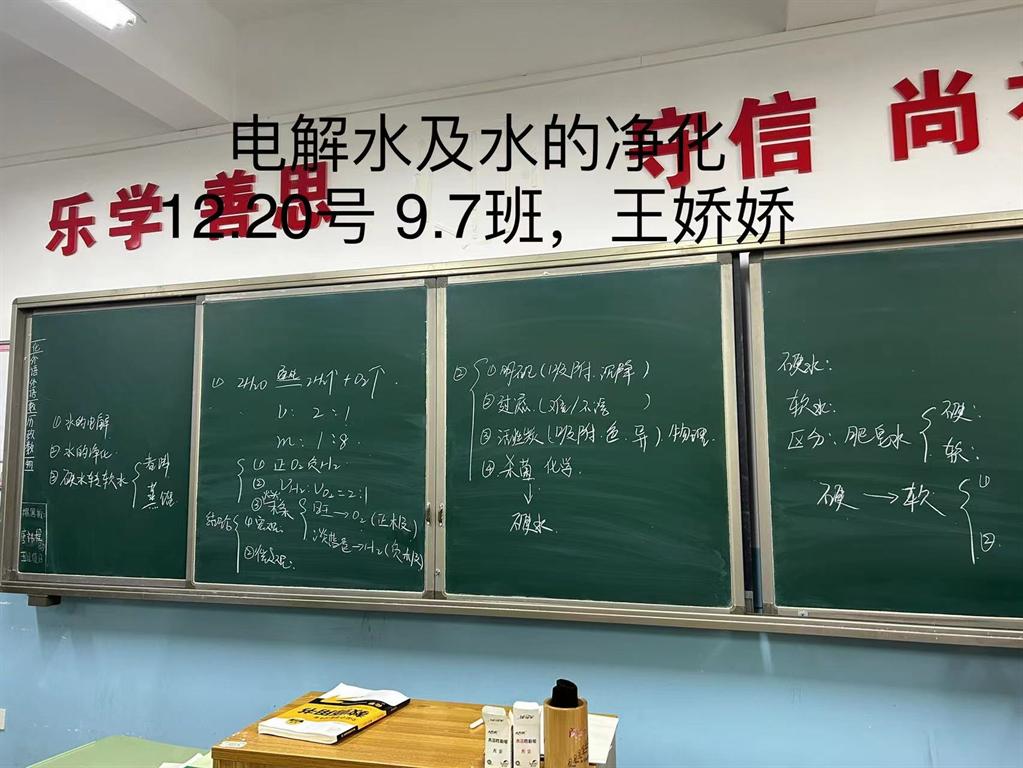 电解水及水的净化
12.20号 9.7班，王娇娇
乐学 善思
守信 尚
①水的电解
②水的净化
③硬水转软水 { 煮沸
蒸馏
① 2H₂O 通电 2H₂↑+O₂↑
V: 2:1
m: 1:8
① 正O₂负H₂
② VH₂:VO₂=2:1
→O₂(正极)
淡蓝色→H₂(负极)
结论 { ①宏观:
②微观:
② { ①明矾(吸附.沉降)
②过滤.(难/不溶 )
③活性炭(吸附.色.异)物理.
④杀菌 化学
↓
硬水
硬水:
软水:
区分: 肥皂水 { 硬:
软:
硬 → 软 { ①
②.